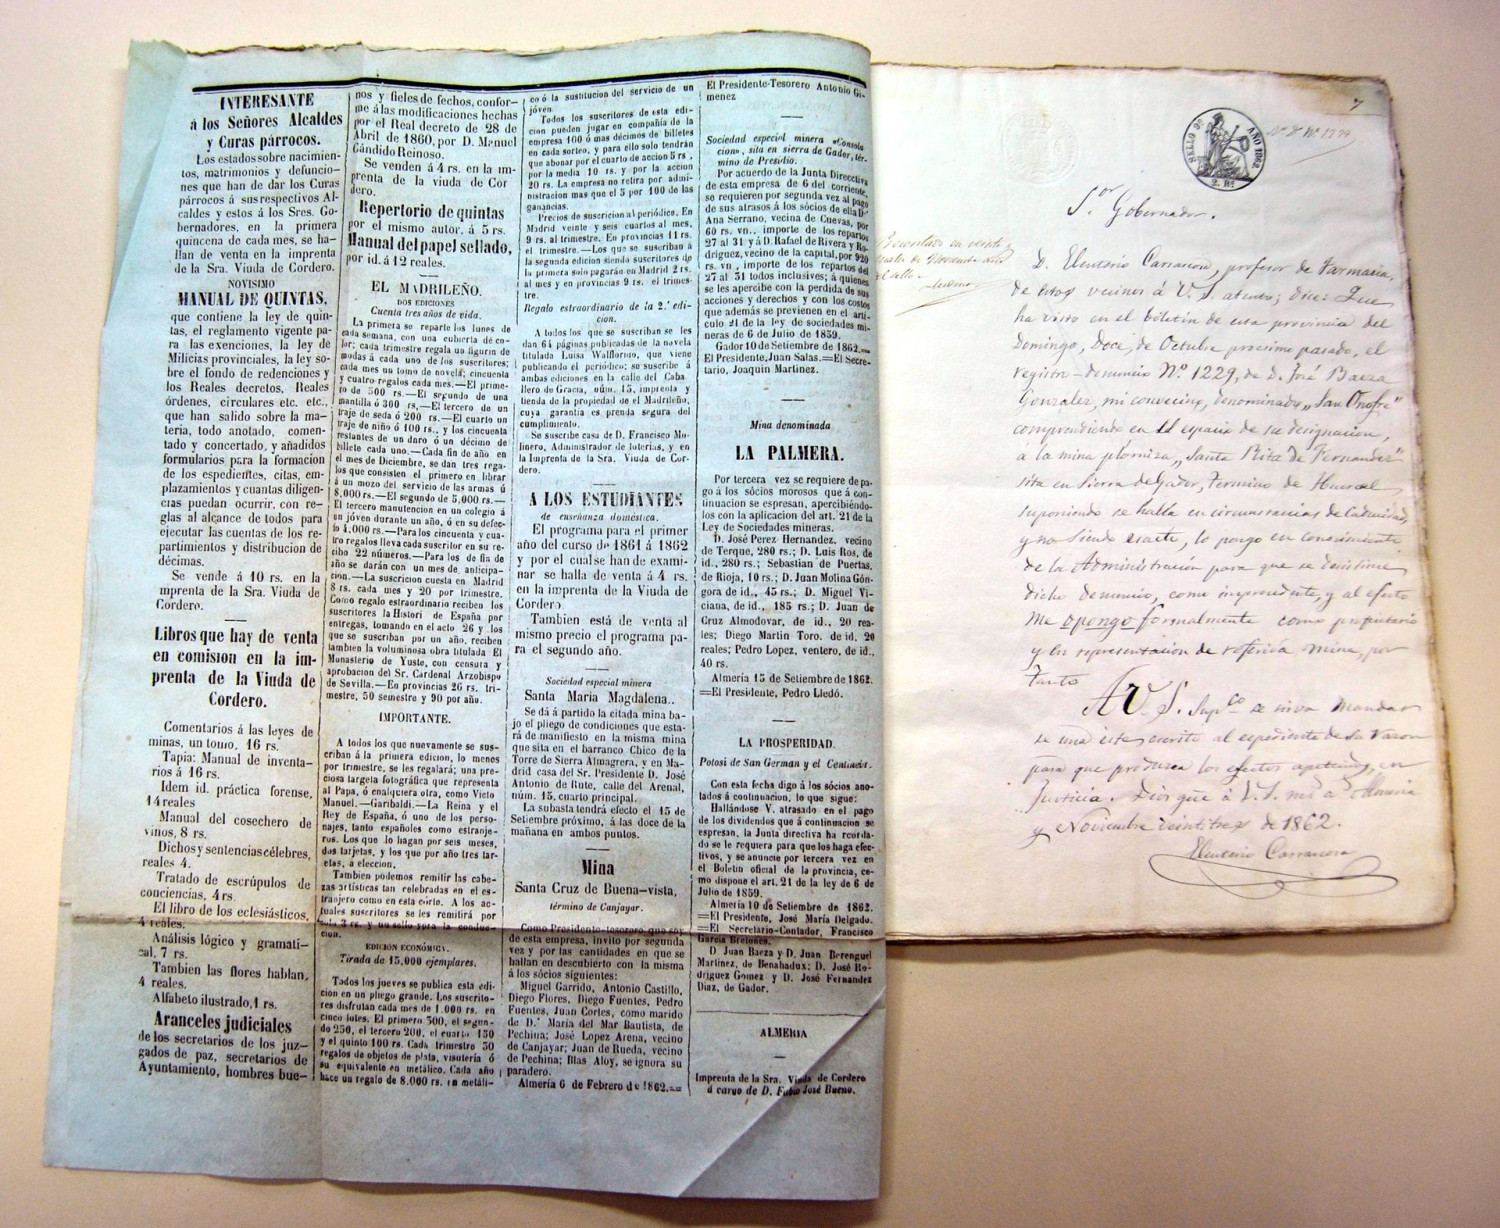 INTERESANTE
á los Señores Alcaldes
y Curas párrocos.
Los estados sobre nacimien-
tos, matrimonios y defuncio-
nes que han de dar los Curas
párrocos á sus respectivos Al-
caldes y estos á los Sres. Go-
bernadores, en la primera
quincena de cada mes, se ha-
llan de venta en la imprenta
de la Sra. Viuda de Cordero.
NOVISIMO
MANUAL DE QUINTAS,
que contiene la ley de quin-
tas, el reglamento vigente pa-
ra las exenciones, la ley de
Milicias provinciales, la ley so-
bre el fondo de redenciones y
los Reales decretos, Reales
órdenes, circulares etc. etc.,
que han salido sobre la ma-
teria, todo anotado, comen-
tado y concertado, y añadidos
formularios para la formacion
de los espedientes, citas, em-
plazamientos y cuantas diligen-
cias puedan ocurrir, con re-
glas al alcance de todos para
ejecutar las cuentas de los re-
partimientos y distribucion de
décimas.
Se vende á 10 rs. en la
imprenta de la Sra. Viuda de
Cordero.
Libros que hay de venta
en comision en la im-
prenta de la Viuda de
Cordero.
Comentarios á las leyes de
minas, un tomo, 16 rs.
Tapia: Manual de inventa-
rios á 16 rs.
Idem id. práctica forense,
14 reales
Manual del cosechero de
vinos, 8 rs.
Dichos y sentencias célebres,
reales 4.
Tratado de escrúpulos de
conciencias, 4 rs.
El libro de los eclesiásticos,
4 reales.
Análisis lógico y gramati-
cal, 7 rs.
Tambien las flores hablan,
4 reales.
Alfabeto ilustrado, 1 rs.
Aranceles judiciales
de los secretarios de los juz-
gados de paz, secretarios de
Ayuntamiento, hombres bue-
nos y fieles de fechos, confor-
me á las modificaciones hechas
por el Real decreto de 28 de
Abril de 1860, por D. Manuel
Cándido Reinoso.
Se venden á 4 rs. en la im-
prenta de la viuda de Cor
dero.
Repertorio de quintas
por el mismo autor, á 5 rs.
Manual del papel sellado,
por id. á 12 reales.
EL MADRILEÑO.
DOS EDICIONES
Cuenta tres años de vida.
La primera se reparte los lunes de
cada semana, con una cubierta de co-
lor; cada trimestre regala un figurin de
modas á cada uno de los suscritores;
cada mes un tomo de novela; cincuenta
y cuatro regalos cada mes.—El prime-
ro de 500 rs.—El segundo de una
mantilla ó 300 rs,—El tercero de un
traje de seda ó 200 rs.—El cuarto un
traje de niño ó 100 rs., y los cincuenta
restantes de un duro ó un décimo de
billete cada uno.—Cada fin de año en
el mes de Diciembre, se dan tres rega-
los que consisten el primero en librar
á un mozo del servicio de las armas ú
8,000 rs.—El segundo de 5,000 rs.—
El tercero manutencion en un colegio á
un jóven durante un año, ó en su defec-
to 4,000 rs.—Para los cincuenta y cua-
tro regalos lleva cada suscritor en su re-
cibo 22 números.—Para los de fin de
año se darán con un mes de anticipa-
cion.—La suscricion cuesta en Madrid
8 rs. cada mes y 20 por trimestre.
Como regalo estraordinario reciben los
suscritores la Histori de España por
entregas, tomando en el acto 26 y los
que se suscriban por un año, reciben
tambien la voluminosa obra titulada El
Monasterio de Yuste, con censura y
aprobacion del Sr. Cardenal Arzobispo
de Sevilla.—En provincias 26 rs. tri-
mestre, 50 semestre y 90 por año.
IMPORTANTE.
A todos los que nuevamente se sus-
criban á la primera edicion, lo menos
por trimestre, se les regalará; una pre-
ciosa targeta fotográfica que representa
al Papa, ó cualquiera otra, como Victo
Manuel.—Garibaldi.—La Reina y el
Rey de España, ó uno de los perso-
najes, tanto españoles como estranje-
ros. Los que lo hagan por seis meses,
dos tarjetas, y los que por año tres tar-
etas, a eleccion.
Tambien podemos remitir las cabe-
zas artísticas tan celebradas en el es-
tranjero como en esta córte. A los ac-
tuales suscritores se les remitirá por
solo 3 rs. y un sello para la conduc-
cion.
EDICION ECONÓMICA.
Tirada de 15,000 ejemplares.
Todos los jueves se publica esta edi-
cion en un pliego grande. Los suscrito-
res disfrutan cada mes de 1.000 rs. en
cinco lotes. El primero 500, el segun-
do 250, el tercero 200, el cuarto 150
y el quinto 100 rs. Cada trimestre 50
regalos de objetos de plata, visutería ó
su equivalente en metálico. Cada año
hace un regalo de 8.000 rs. en metáli-
co ó la sustitucion del servicio de un
jóven.
Todos los suscritores de esta edi-
cion pueden jugar en compañía de la
empresa 100 ó mas décimos de billetes
en cada sorteo, y para ello solo tendrán
que abonar por el cuarto de accion 5 rs,
por la media 10 rs. y por la accion
20 rs. La empresa no retira por admi-
nistracion mas que el 5 por 100 de las
ganancias.
Precios de suscricion al periódico. En
Madrid veinte y seis cuartos al mes,
9 rs. al trimestre. En provincias 11 rs.
el trimestre.—Los que se suscriban á
la segunda edicion siendo suscritores de
la primera solo pagarán en Madrid 2 rs.
al mes y en provincias 9 rs. el trimes-
tre.
Regalo estraordinario de la 2.ª edi-
cion.
A todos los que se suscriban se les
dan 64 páginas publicadas de la novela
titulada Luisa Walflorino, que viene
publicando el periódico; se suscribe á
ambas ediciones en la calle del Caba
llero de Gracia, núm. 15, imprenta y
tienda de la propiedad de el Madrileño,
cuya garantía es prenda segura del
cumplimiento.
Se suscribe casa de D. Francisco Mo-
linero, Administrador de loterías, y en
la Imprenta de la Sra. Viuda de Cor-
dero.
A LOS ESTUDIANTES
de enseñanza doméstica.
El programa para el primer
año del curso de 1861 á 1862
y por el cual se han de exami-
nar se halla de venta á 4 rs.
en la imprenta de la Viuda de
Cordero.
Tambien está de venta al
mismo precio el programa pa-
ra el segundo año.
Sociedad especial minera
Santa Maria Magdalena..
Se dá á partido la citada mina ba-
jo el pliego de condiciones que esta-
rá de manifiesto en la misma mina
que sita en el barranco Chico de la
Torre de Sierra Almagrera, y en Ma-
drid casa del Sr. Presidente D. José
Antonio de Rute, calle del Arenal,
núm. 15, cuarto principal.
La subasta tendrá efecto el 15 de
Setiembre próximo, á las doce de la
mañana en ambos puntos.
Mina
Santa Cruz de Buena-vista,
término de Canjayar.
Como Presidente-tesorero que soy
de esta empresa, invito por segunda
vez y por las cantidades en que se
hallan en descubierto con la misma
á los sócios siguientes:
Miguel Garrido, Antonio Castillo,
Diego Flores, Diego Fuentes, Pedro
Fuentes, Juan Cortes, como marido
de D.ª María del Mar Bautista, de
Pechina; José Lopez Arena, vecino
de Canjayar; Juan de Rueda, vecino
de Pechina; Blas Aloy, se ignora su
paradero.
Almería 6 de Febrero de 1862.==
El Presidente-Tesorero Antonio Gi-
menez
Sociedad especial minera «Consola
cion», sita en sierra de Gador, tér-
mino de Presidio.
Por acuerdo de la Junta Direcctiva
de esta empresa de 6 del corriente,
se requieren por segunda vez al pago
de sus atrasos á los sócios de ella D.ª
Ana Serrano, vecina de Cuevas, por
60 rs. vn., importe de los repartos
27 al 31 y á D. Rafael de Rivera y Ro-
driguez, vecino de la capital, por 920
rs. vn, importe de los repartos del
27 al 31 todos inclusives; á quienes
se les apercibe con la perdida de sus
acciones y derechos y con los costos
que además se previenen en el artí-
culo 21 de la ley de sociedades mi-
neras de 6 de Julio de 1859.
Gador 10 de Setiembre de 1862.==
El Presidente, Juan Salas.==El Secre-
tario, Joaquin Martinez.
Mina denominada
LA PALMERA.
Por tercera vez se requiere de pa-
go á los sócios morosos que á con-
tinuacion se espresan, apercibiéndo-
los con la aplicacion del art. 21 de la
Ley de Sociedades mineras.
D. José Perez Hernandez, vecino
de Terque, 280 rs.; D. Luis Ros, de
id., 280 rs.; Sebastian de Puertas,
de Rioja, 10 rs.; D. Juan Molina Gón-
gora de id., 45 rs.; D. Miguel Vi-
ciana, de id., 185 rs.; D. Juan de
Cruz Almodovar, de id., 20 rea-
les; Diego Martin Toro, de id. 20
reales; Pedro Lopez, ventero, de id.,
40 rs.
Almería 15 de Setiembre de 1862.
==El Presidente, Pedro Lledó.
LA PROSPERIDAD.
Potosi de San German y el Centinela.
Con esta fecha digo á los sócios ano-
tados á continuacion, lo que sigue:
Hallándose V. atrasado en el pago
de los dividendos que á continuacion se
espresan, la Junta directiva ha acorda-
do se le requiera para que los haga efec-
tivos, y se anuncie por tercera vez en
el Boletin oficial de la provincia, co-
mo dispone el art. 21 de la ley de 6 de
Julio de 1859.
Almería 10 de Setiembre de 1862.
==El Presidente, José María Delgado.
==El Secretario-Contador, Francisco
García Bretones.
D. Juan Baeza y D. Juan Berenguel
Martinez, de Benahadux; D. José Ro-
driguez Gomez y D. José Fernandez
Diaz, de Gador.
ALMERIA
Imprenta de la Sra. Viuda de Cordero
á cargo de D. Fabio José Bueno.
7
SELLO 9º AÑO 1862
2. Rs
Sor Gobernador.
D. Eleuterio Carrascosa, profesor de Farmacia,
de estos vecinos á V. S. atento; dice: Que
ha visto en el boletin de esta provincia del
Domingo, doce, de Octubre procsimo pasado, el
registro-denuncio Nº 1229, de D. José Baeza
Gonzalez, mi convecino, denominado „San Onofre"
comprendiendo en el espacio de su designacion,
á la mina plomiza „Santa Rita de Fernandez"
sita en Sierra de Gador, termino de Huercal,
suponiendo se halla en circunstancias de Caducidad,
y no siendo esacto, lo pongo en conocimiento
de la Administración para que se desestime
dicho denuncio, como improcedente, y al efecto
me opongo formalmente como propietario
y en representacion de referida mina, por
tanto
A V. S. Supco se sirva mandar
se una este escrito al espediente de su razon
para que produzca los efectos apetecidos, en
Justicia. Dios gue á V. S. ms as Almeria
y Noviembre veintitres de 1862.
Eleuterio Carrascosa